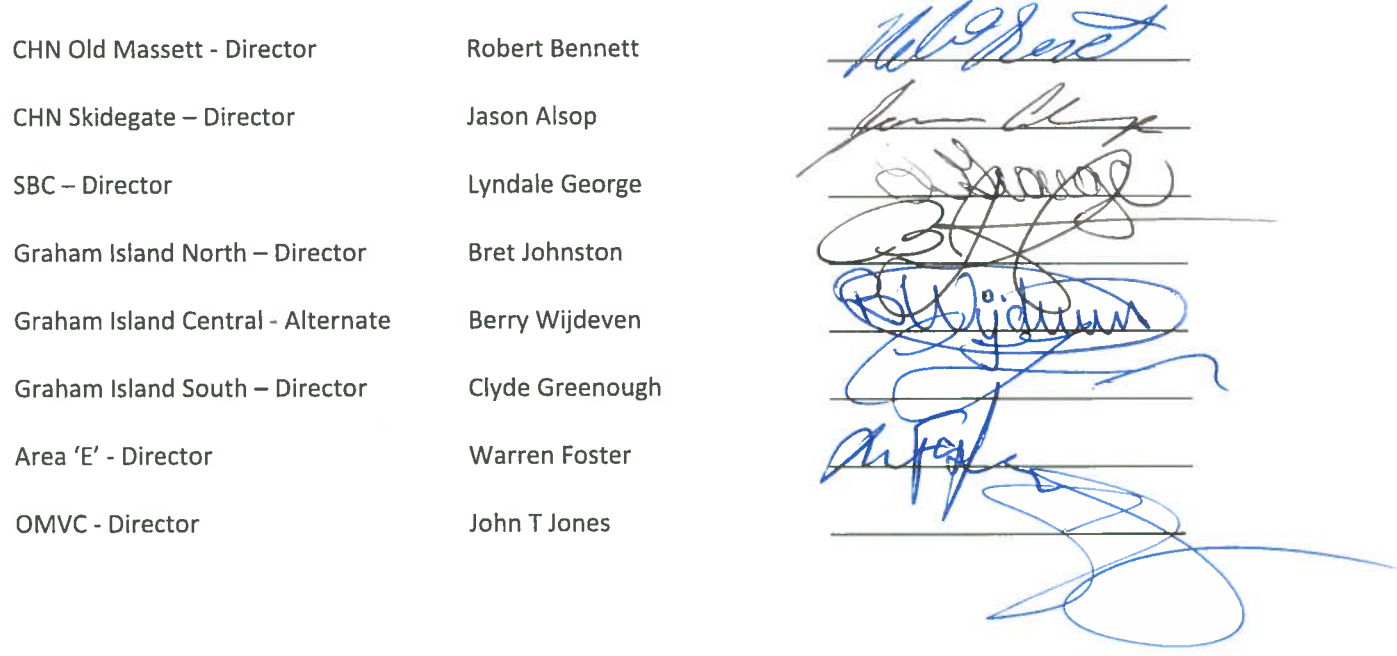 CHN Old Massett - Director Robert Bennett
CHN Skidegate – Director Jason Alsop
SBC – Director Lyndale George
Graham Island North – Director Bret Johnston
Graham Island Central - Alternate Berry Wijdeven B Wijdeven
Graham Island South – Director Clyde Greenough
Area 'E' - Director Warren Foster
OMVC - Director John T Jones